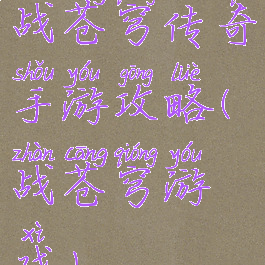 战苍穹传奇
shǒu yóu gōng lüè
手游攻略(
zhàn cāng qióng yóu
战苍穹游
xì
戏)